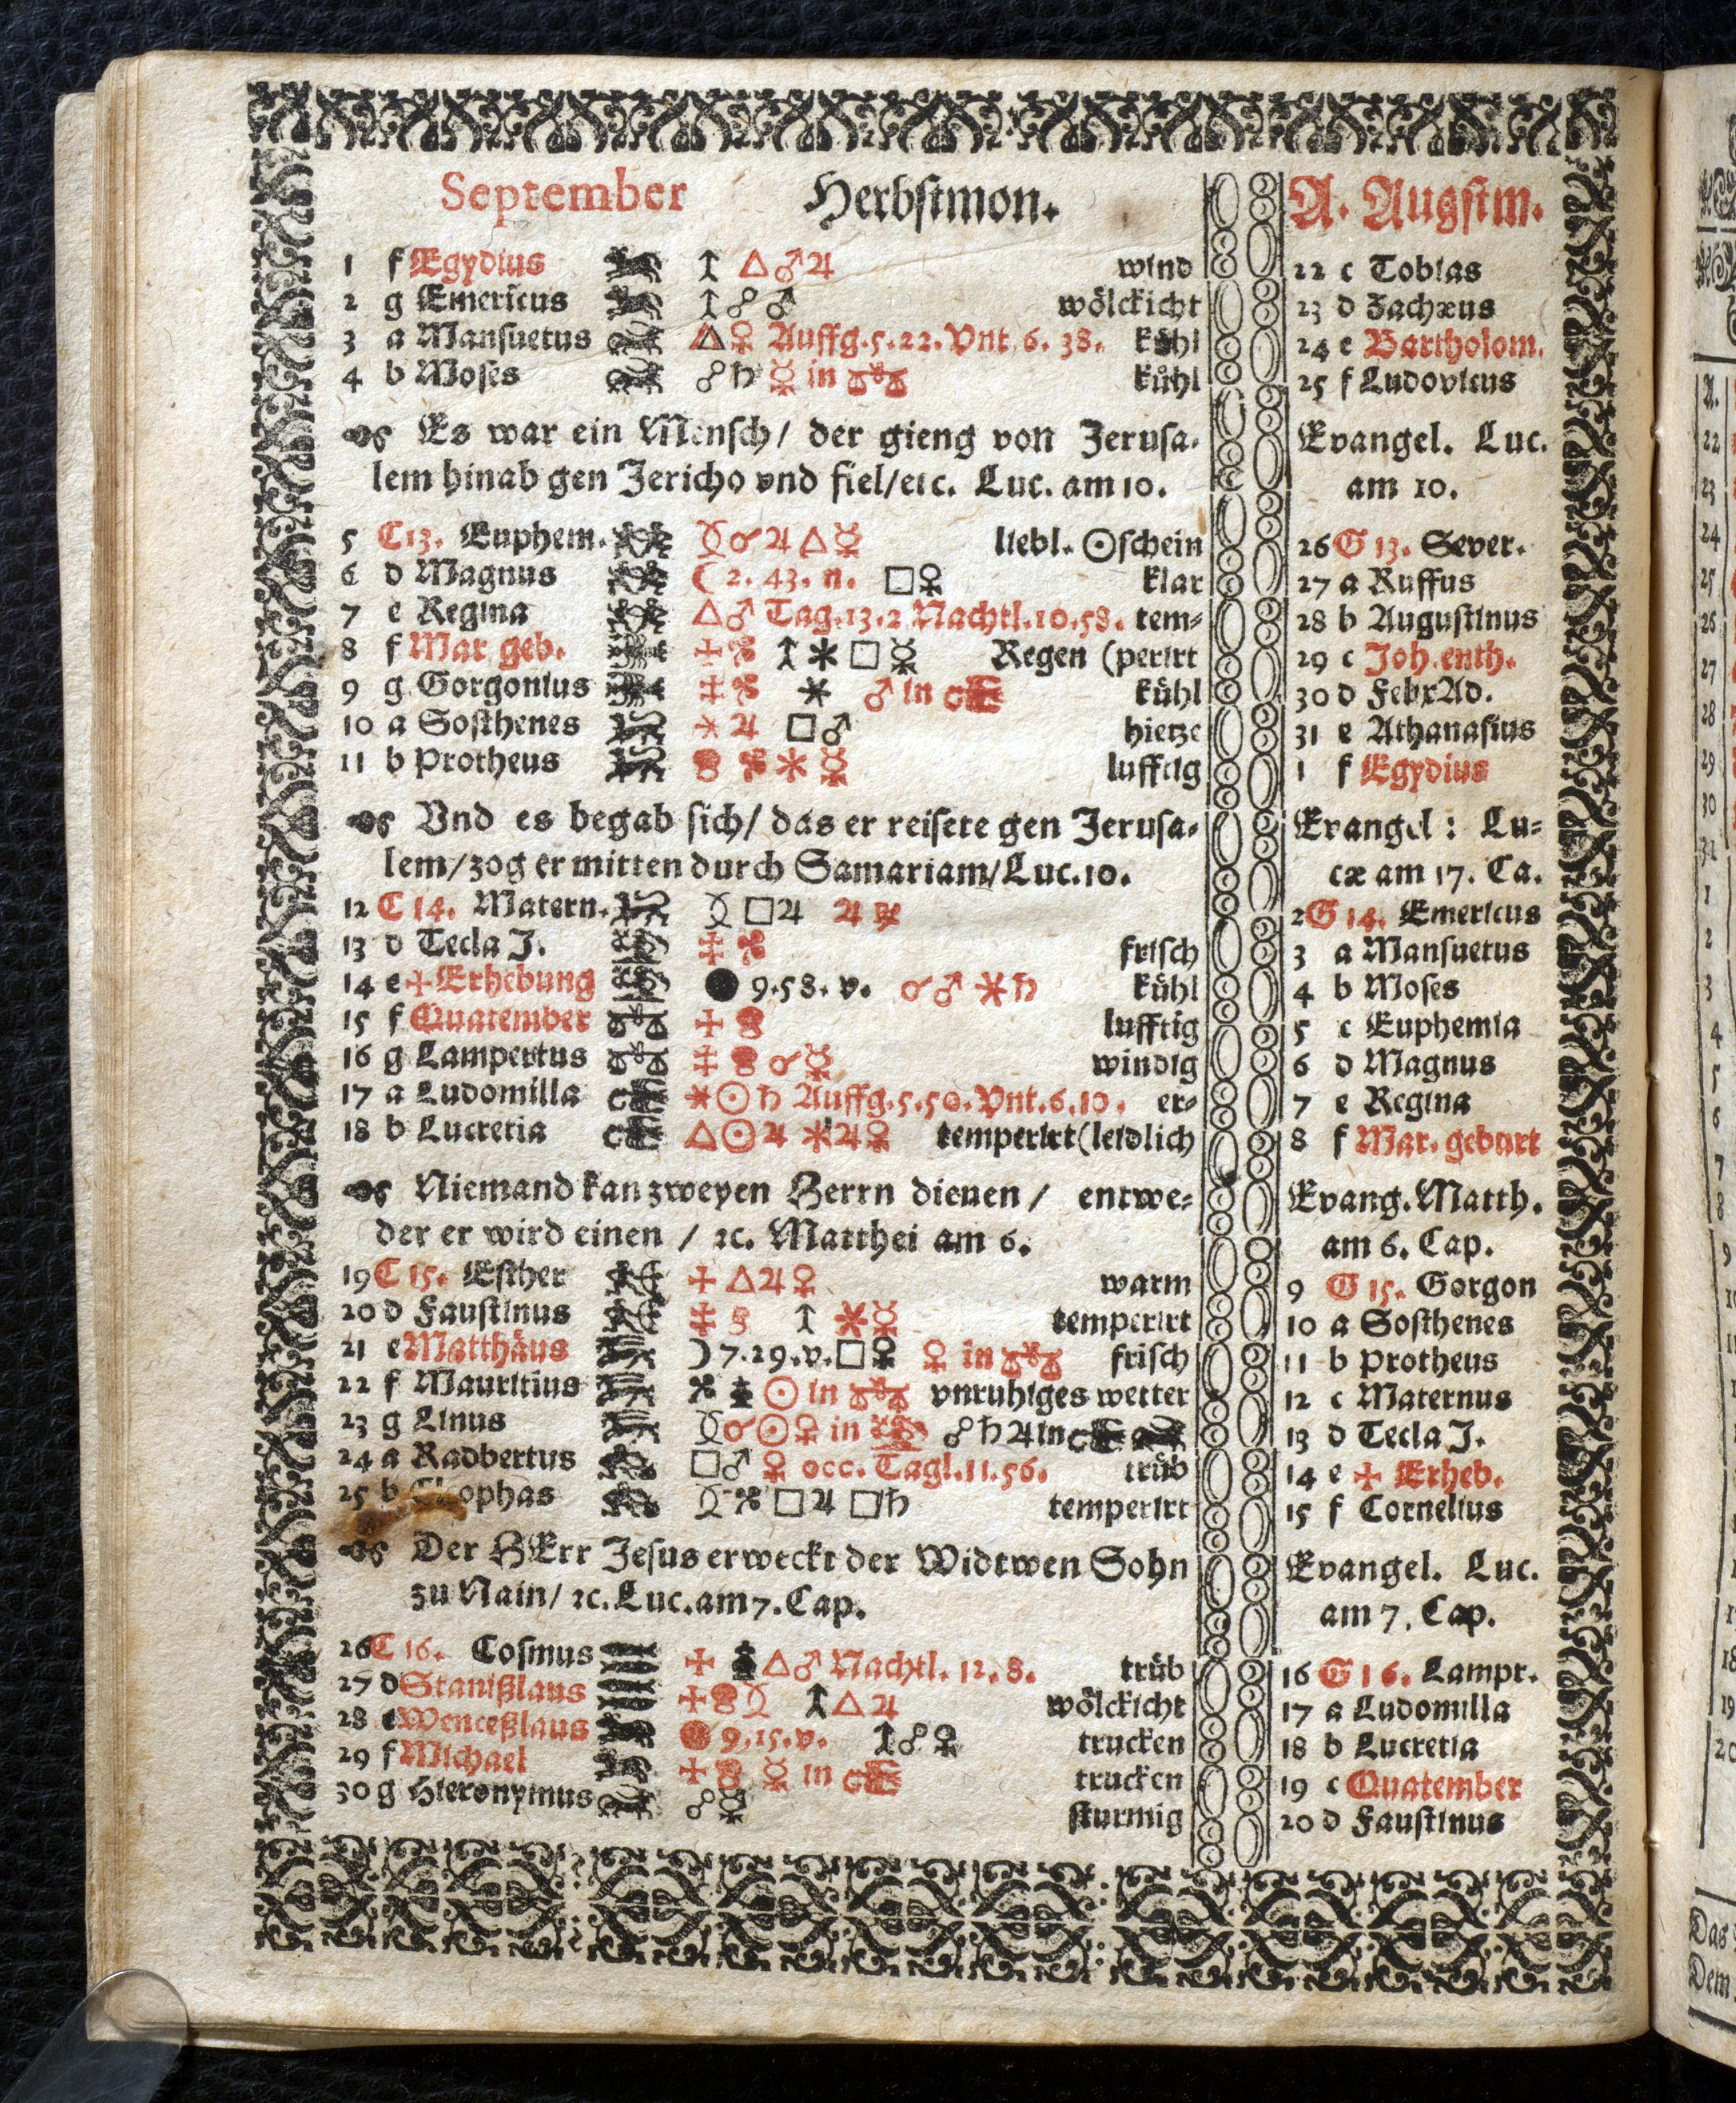 September Herbstmon. A. Augstm.
1 f Ægydius △♂♃ wind 22 c Tobias
2 g Emericus ☍♂ wölckicht 23 d Zachæus
3 a Mansuetus △♀ Auffg. 5. 22. Vnt. 6. 38. kühl 24 e Bartholom.
4 b Moses ☍♄ ☿ in ♎ kühl 25 f Ludovicus
Es war ein Mensch/ der gieng von Jerusa- Evangel. Luc.
lem hinab gen Jericho vnd fiel/etc. Luc. am 10. am 10.
5 C 13. Euphem. ☌♃△☿ liebl. ☉schein 26 G 13. Sever.
6 d Magnus ☾ 2. 43. n. □♀ klar 27 a Ruffus
7 e Regina △♂ Tag. 13. 2 Nachtl. 10. 58. tem- 28 b Augustinus
8 f Mar geb. ⚹□☿ Regen (perirt 29 c Joh. enth.
9 g Gorgonius ⚹ ♂ in ♏ kühl 30 d FelixAd.
10 a Sosthenes ⚹♃ □♂ hietze 31 e Athanasius
11 b Protheus ⚹☿ lufftig 1 f Egydius
Vnd es begab sich/ das er reisete gen Jerusa- Evangel: Lu-
lem/zog er mitten durch Samariam/Luc. 10. cæ am 17. Ca.
12 C 14. Matern. □♃ ♃ 2 G 14. Emericus
13 d Tecla J. frisch 3 a Mansuetus
14 e ✢ Erhebung ● 9. 58. v. ☌♂ ⚹♄ kühl 4 b Moses
15 f Quatember lufftig 5 c Euphemia
16 g Lampertus ☌☿ windig 6 d Magnus
17 a Ludomilla ⚹☉♄ Auffg. 5. 50. Vnt. 6. 10. er- 7 e Regina
18 b Lucretia △☉♃ ⚹♃♀ temperirt (leidlich 8 f Mar. geburt
Niemand kan zweyen Herrn dienen / entwe- Evang. Matth.
der er wird einen / ꝛc. Matthei am 6. am 6. Cap.
19 C 15. Esther △♃♀ warm 9 G 15. Gorgon
20 d Faustinus ⚹☿ temperirt 10 a Sosthenes
21 e Matthäus ☽ 7. 29. v. □♀ ♀ in ♎ frisch 11 b Protheus
22 f Mauritius ☉ in ♎ vnruhiges wetter 12 c Maternus
23 g Linus ☌☉♀ in ♍ ☍♄♃ in ♏ 13 d Tecla J.
24 a Radbertus □♂ ♀ occ. Tagl. 11. 56. trüb 14 e ✢ Erheb.
25 b Cleophas □♃ □♄ temperirt 15 f Cornelius
Der HErr Jesus erweckt der Widtwen Sohn Evangel. Luc.
zu Nain/ ꝛc. Luc. am 7. Cap. am 7. Cap.
26 C 16. Cosmus △♂ Nachtl. 12. 8. trüb 16 G 16. Lampr.
27 d Stanißlaus △♃ wölckicht 17 a Ludomilla
28 e Wenceßlaus 9. 15. v. ☍♀ trucken 18 b Lucretia
29 f Michael ☿ in ♏ trucken 19 c Quatember
30 g Hieronymus ☍☿ sturmig 20 d Faustinus